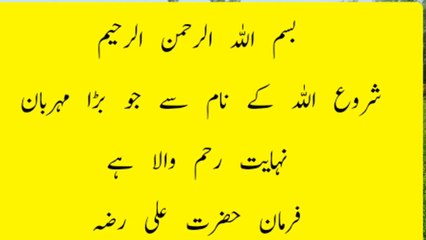 بسم اللہ الرحمن الرحیم
شروع اللہ کے نام سے جو بڑا مہربان
نہایت رحم والا ہے
فرمان حضرت علی رضہ